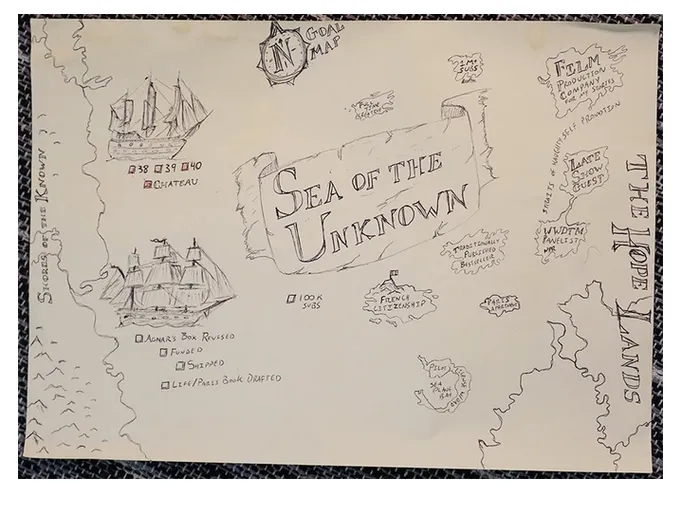 N
GOAL
MAP
1 MIL
SUBS
FILM
PRODUCTION
COMPANY
FOR MY STORIES
38 39 40
CHATEAU
SEA OF THE
UNKNOWN
STRAITS OF NAUGHTY SELF PROMOTION
LATE
SHOW
GUEST
WWDTM
PANELIST
NPR
THE HOPE LANDS
SHORES OF THE KNOWN
TRADITIONALLY
PUBLISHED
BESTSELLER
FRENCH
CITIZENSHIP
PARIS
APARTMENT
100K
SUBS
AGNAR'S BOX REVISED
FUNDED
SHIPPED
LIFE/PARIS BOOK DRAFTED
PILOT
SEA
PLANE
BAY